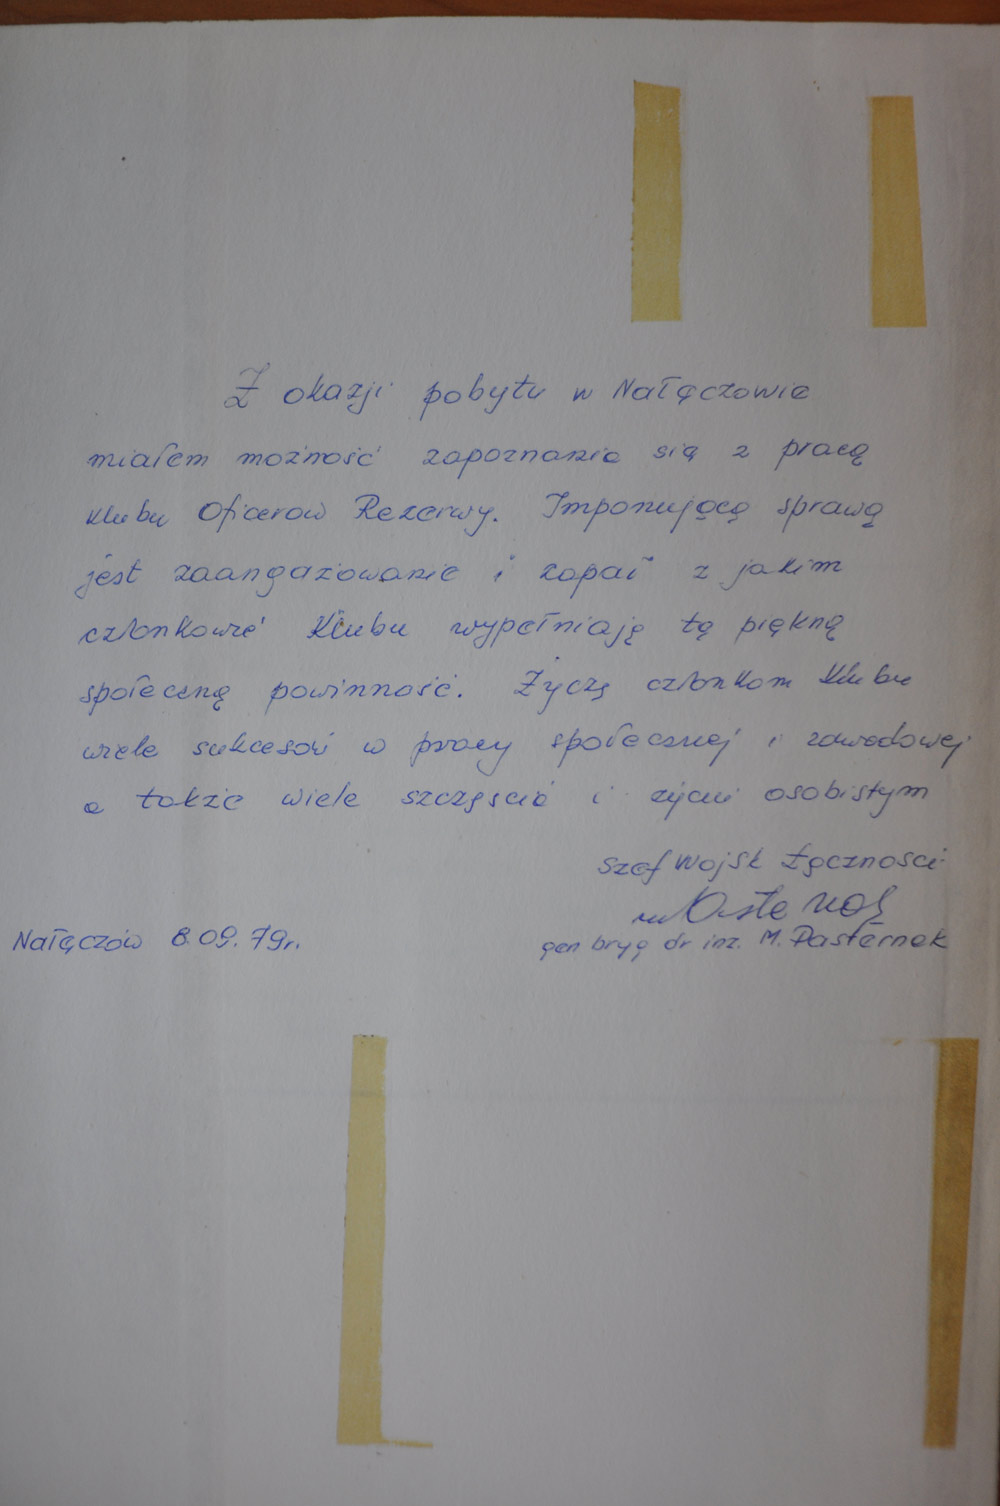 Z okazji pobytu w Nałęczowie
miałem możność zapoznania się z pracą
Klubu Oficerów Rezerwy. Imponującą sprawą
jest zaangażowanie i zapał z jakim
członkowie Klubu wypełniają tą piękną
społeczną powinność. Życzę członkom Klubu
wiele sukcesów w pracy społecznej i zawodowej
a także wiele szczęścia i życiu osobistym
Szef Wojsk Łączności
Nałęczów 8.09.79r.
gen bryg dr inż. M. Pasternak